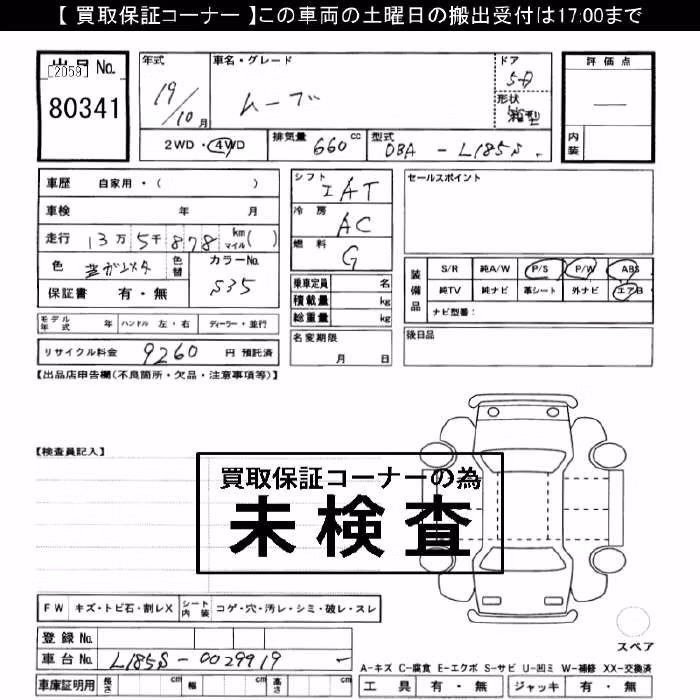 【 買取保証コーナー 】この車両の土曜日の搬出受付は17:00まで
出品 No.
[2059]
80341
年式
19/10 月
車名・グレード
ムーブ
ドア
5D
形状
箱型
評 価 点
内装
2WD・4WD
排気量 660 cc
型式 DBA - L185S
車歴 自家用・( )
車検 年 月
走行 13万 5千 878 km マイル ( )
色
色替
カラーNo. S35
保証書 有・無
シフト IAT
冷房 AC
燃料 G
乗車定員 名
積載量 kg
総重量 kg
セールスポイント
装備品
S/R 純A/W P/S P/W ABS
純TV 純ナビ 革シート 外ナビ エアB
ナビ型番:
モデル年式 年 ハンドル 左・右 ディーラー・並行
名変期限 月 日
後日品
リサイクル料金 9260 円 預託済
【出品店申告欄(不良箇所・欠品・注意事項等)】
【検査員記入】
買取保証コーナーの為
未検査
FW キズ・トビ石・割レX シート内装 コゲ・穴・汚レ・シミ・破レ・スレ
スペア
登録 No.
車台 No. L185S-0029919
A-キズ C-腐食 E-エクボ S-サビ U-凹ミ W-補修 XX-交換済
車庫証明用 長さ cm 幅 cm 高さ cm
工具 有・無 ジャッキ 有・無